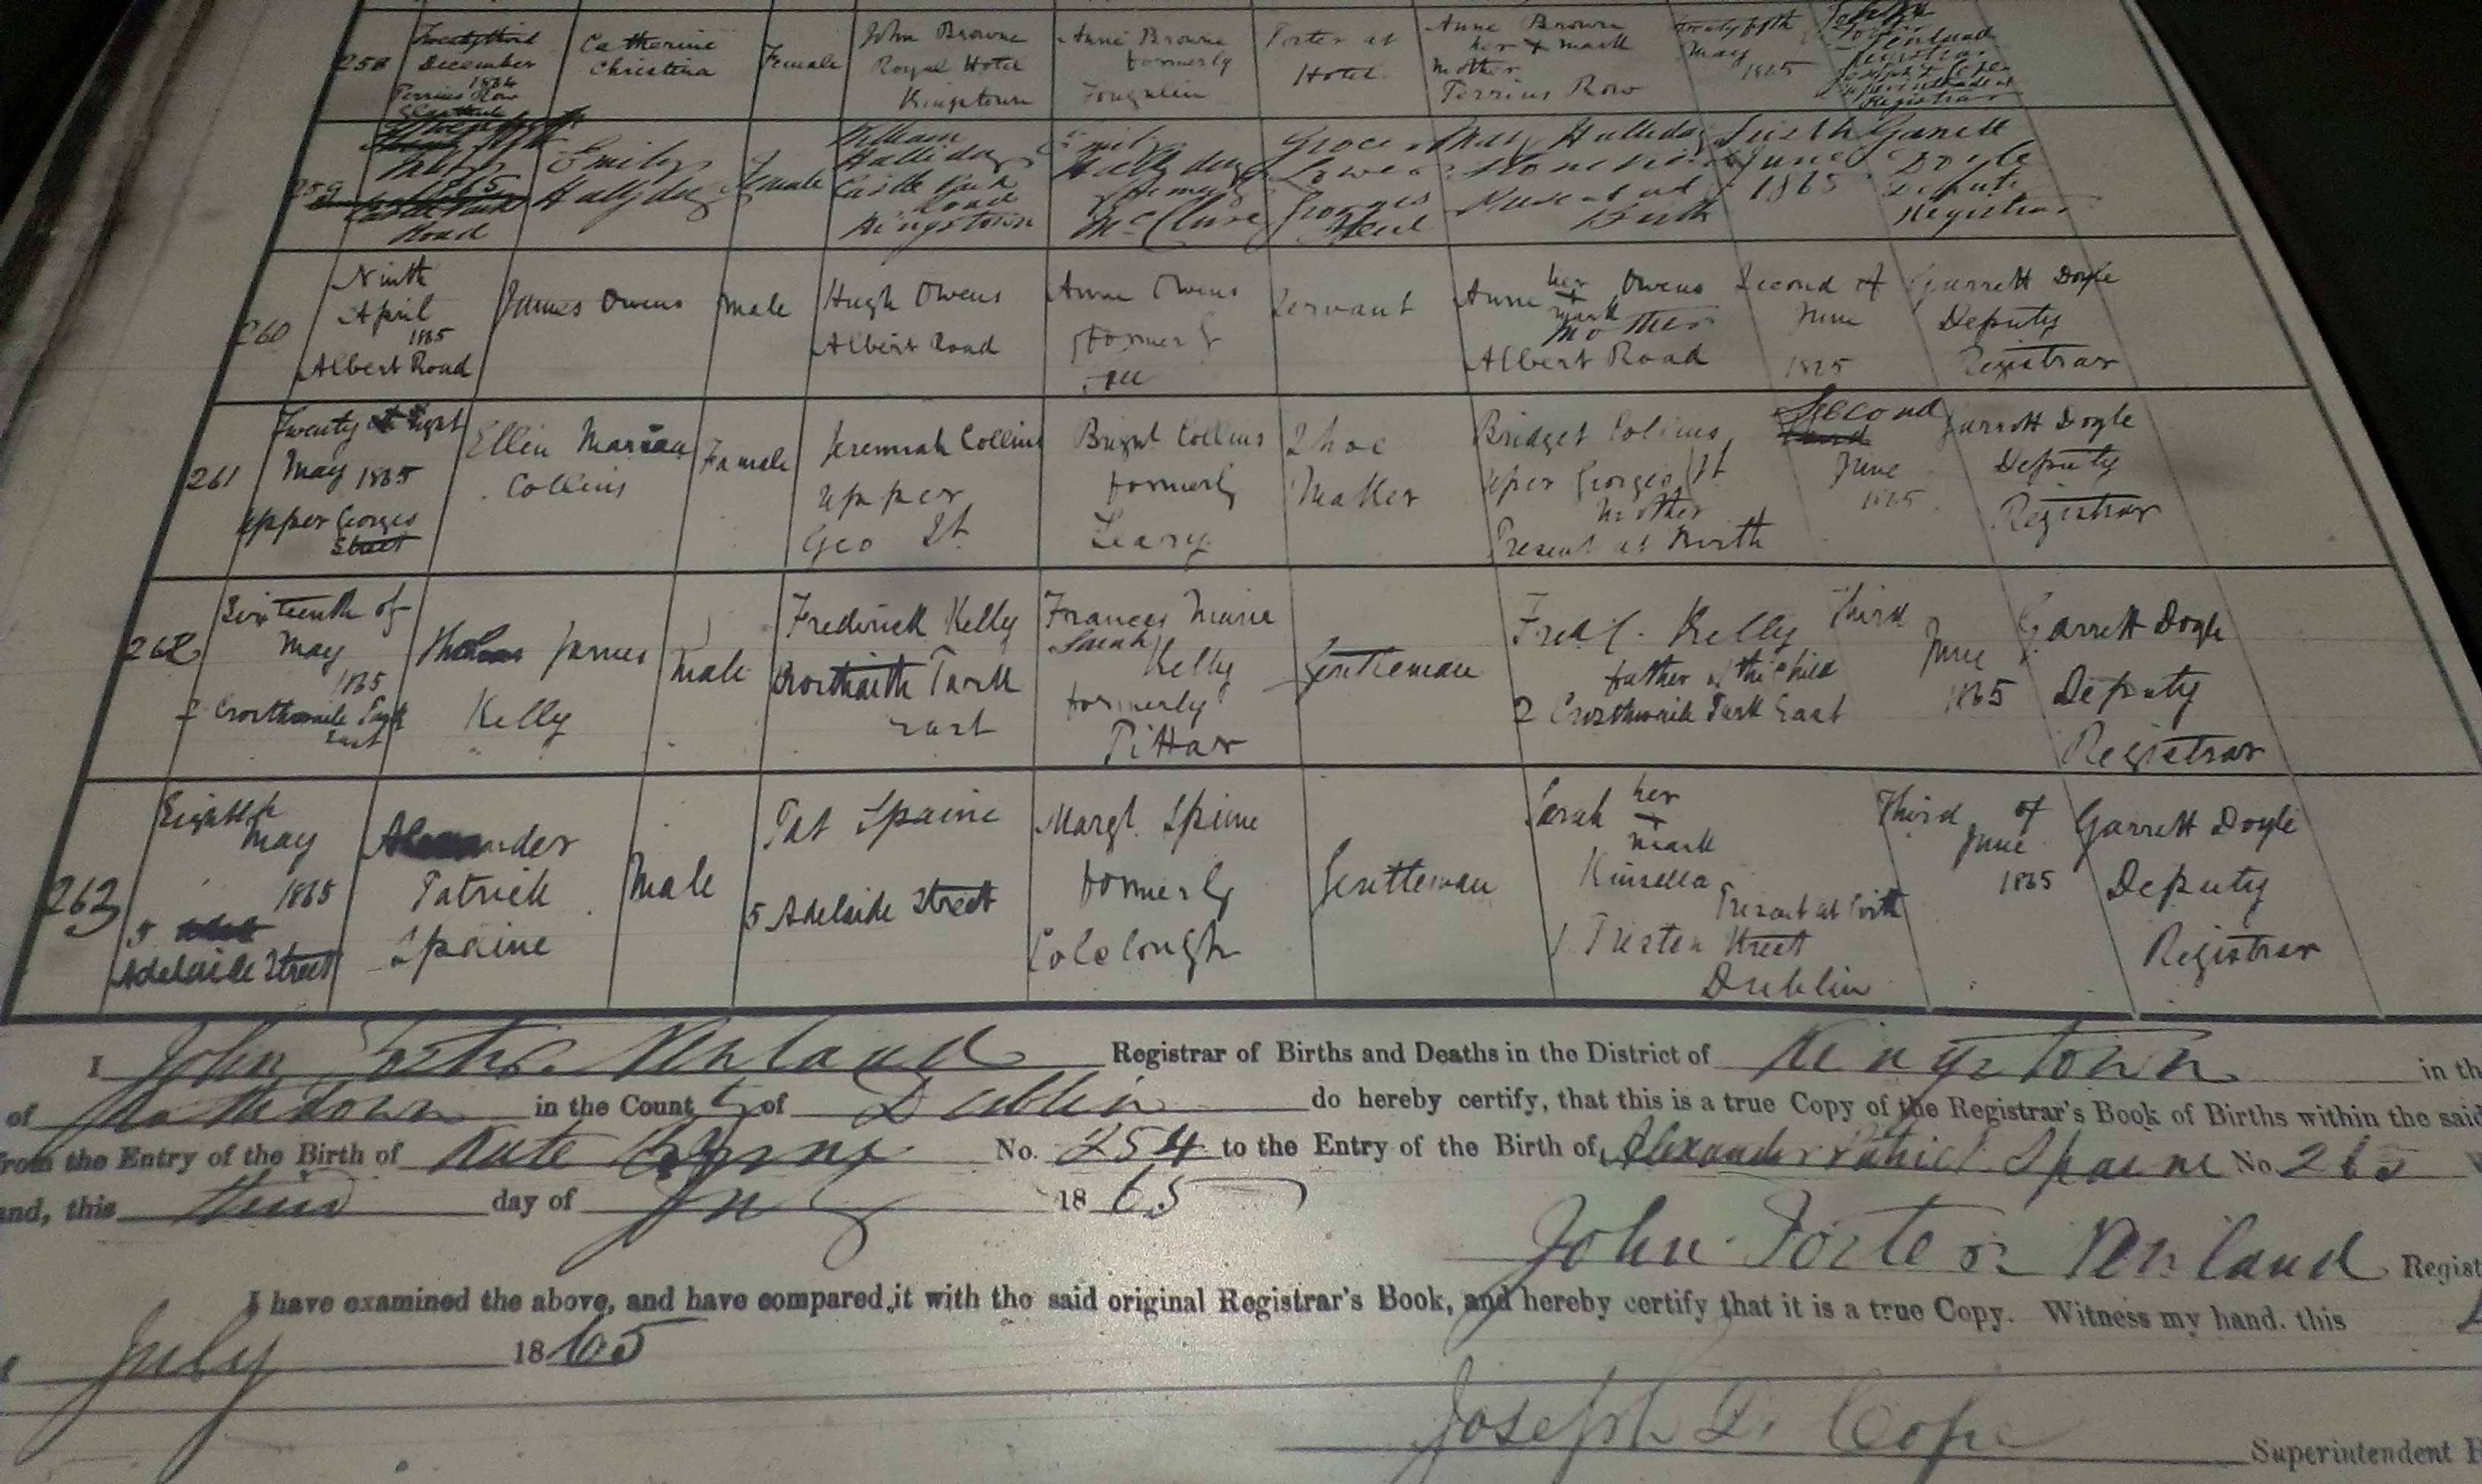 258
December
1864
Catherine
Christina
Female
John Browne
Royal Hotel
Kingstown
Anne Browne
formerly
Porter at
Hotel
Anne Browne
her x mark
Mother
Row
May
Registrar
259
1865
Road
Emily
Hallyday
Female
William
Halliday
Castle Park
Road
Kingstown
Emily
formerly
McClure
Mary Halliday
Present at
Birth
June
1865
Garrett
Doyle
Deputy
Registrar
260
Ninth
April
1865
Albert Road
James Owens
Male
Hugh Owens
Albert Road
Anne Owens
formerly
Servant
Anne her x mark Owens
Mother
Albert Road
Second of
June
Garrett Doyle
Deputy
Registrar
261
Twenty eight
May 1865
upper Georges
Street
Ellen
Collins
Female
Jeremiah Collins
upper
Geo St.
Collins
formerly
Leary
Shoe
Maker
Bridget
Georges St.
Mother
Present at Birth
Second
June
Garrett Doyle
Deputy
Registrar
262
Sixteenth of
May
1865
2 Crosthwaite Park
East
James
Kelly
Male
Frederick Kelly
Park
East
Frances Maria
Sarah
Kelly
formerly
Pittar
Gentleman
Kelly
father of the child
2 Crosthwaite Park East
Third
June
1865
Garrett Doyle
Deputy
Registrar
263
Eighth
May
1865
5
Adelaide Street
Alexander
Patrick
Spaine
Male
Pat Spaine
5 Adelaide Street
Margt. Spaine
formerly
Colclough
Gentleman
Sarah her x mark
Kinsella
Present at birth
1 Street
Dublin
Third of
June
1865
Garrett Doyle
Deputy
Registrar
I John Registrar of Births and Deaths in the District of Kingstown in th
of Rathdown in the County of Dublin do hereby certify, that this is a true Copy of the Registrar's Book of Births within the said
from the Entry of the Birth of Kate Byrne No. 254 to the Entry of the Birth of Alexander Patrick Spaine No. 263
and, this third day of July 1865
John Regist
I have examined the above, and have compared it with the said original Registrar's Book, and hereby certify that it is a true Copy. Witness my hand. this
July 1865
Joseph Cope
Superintendent